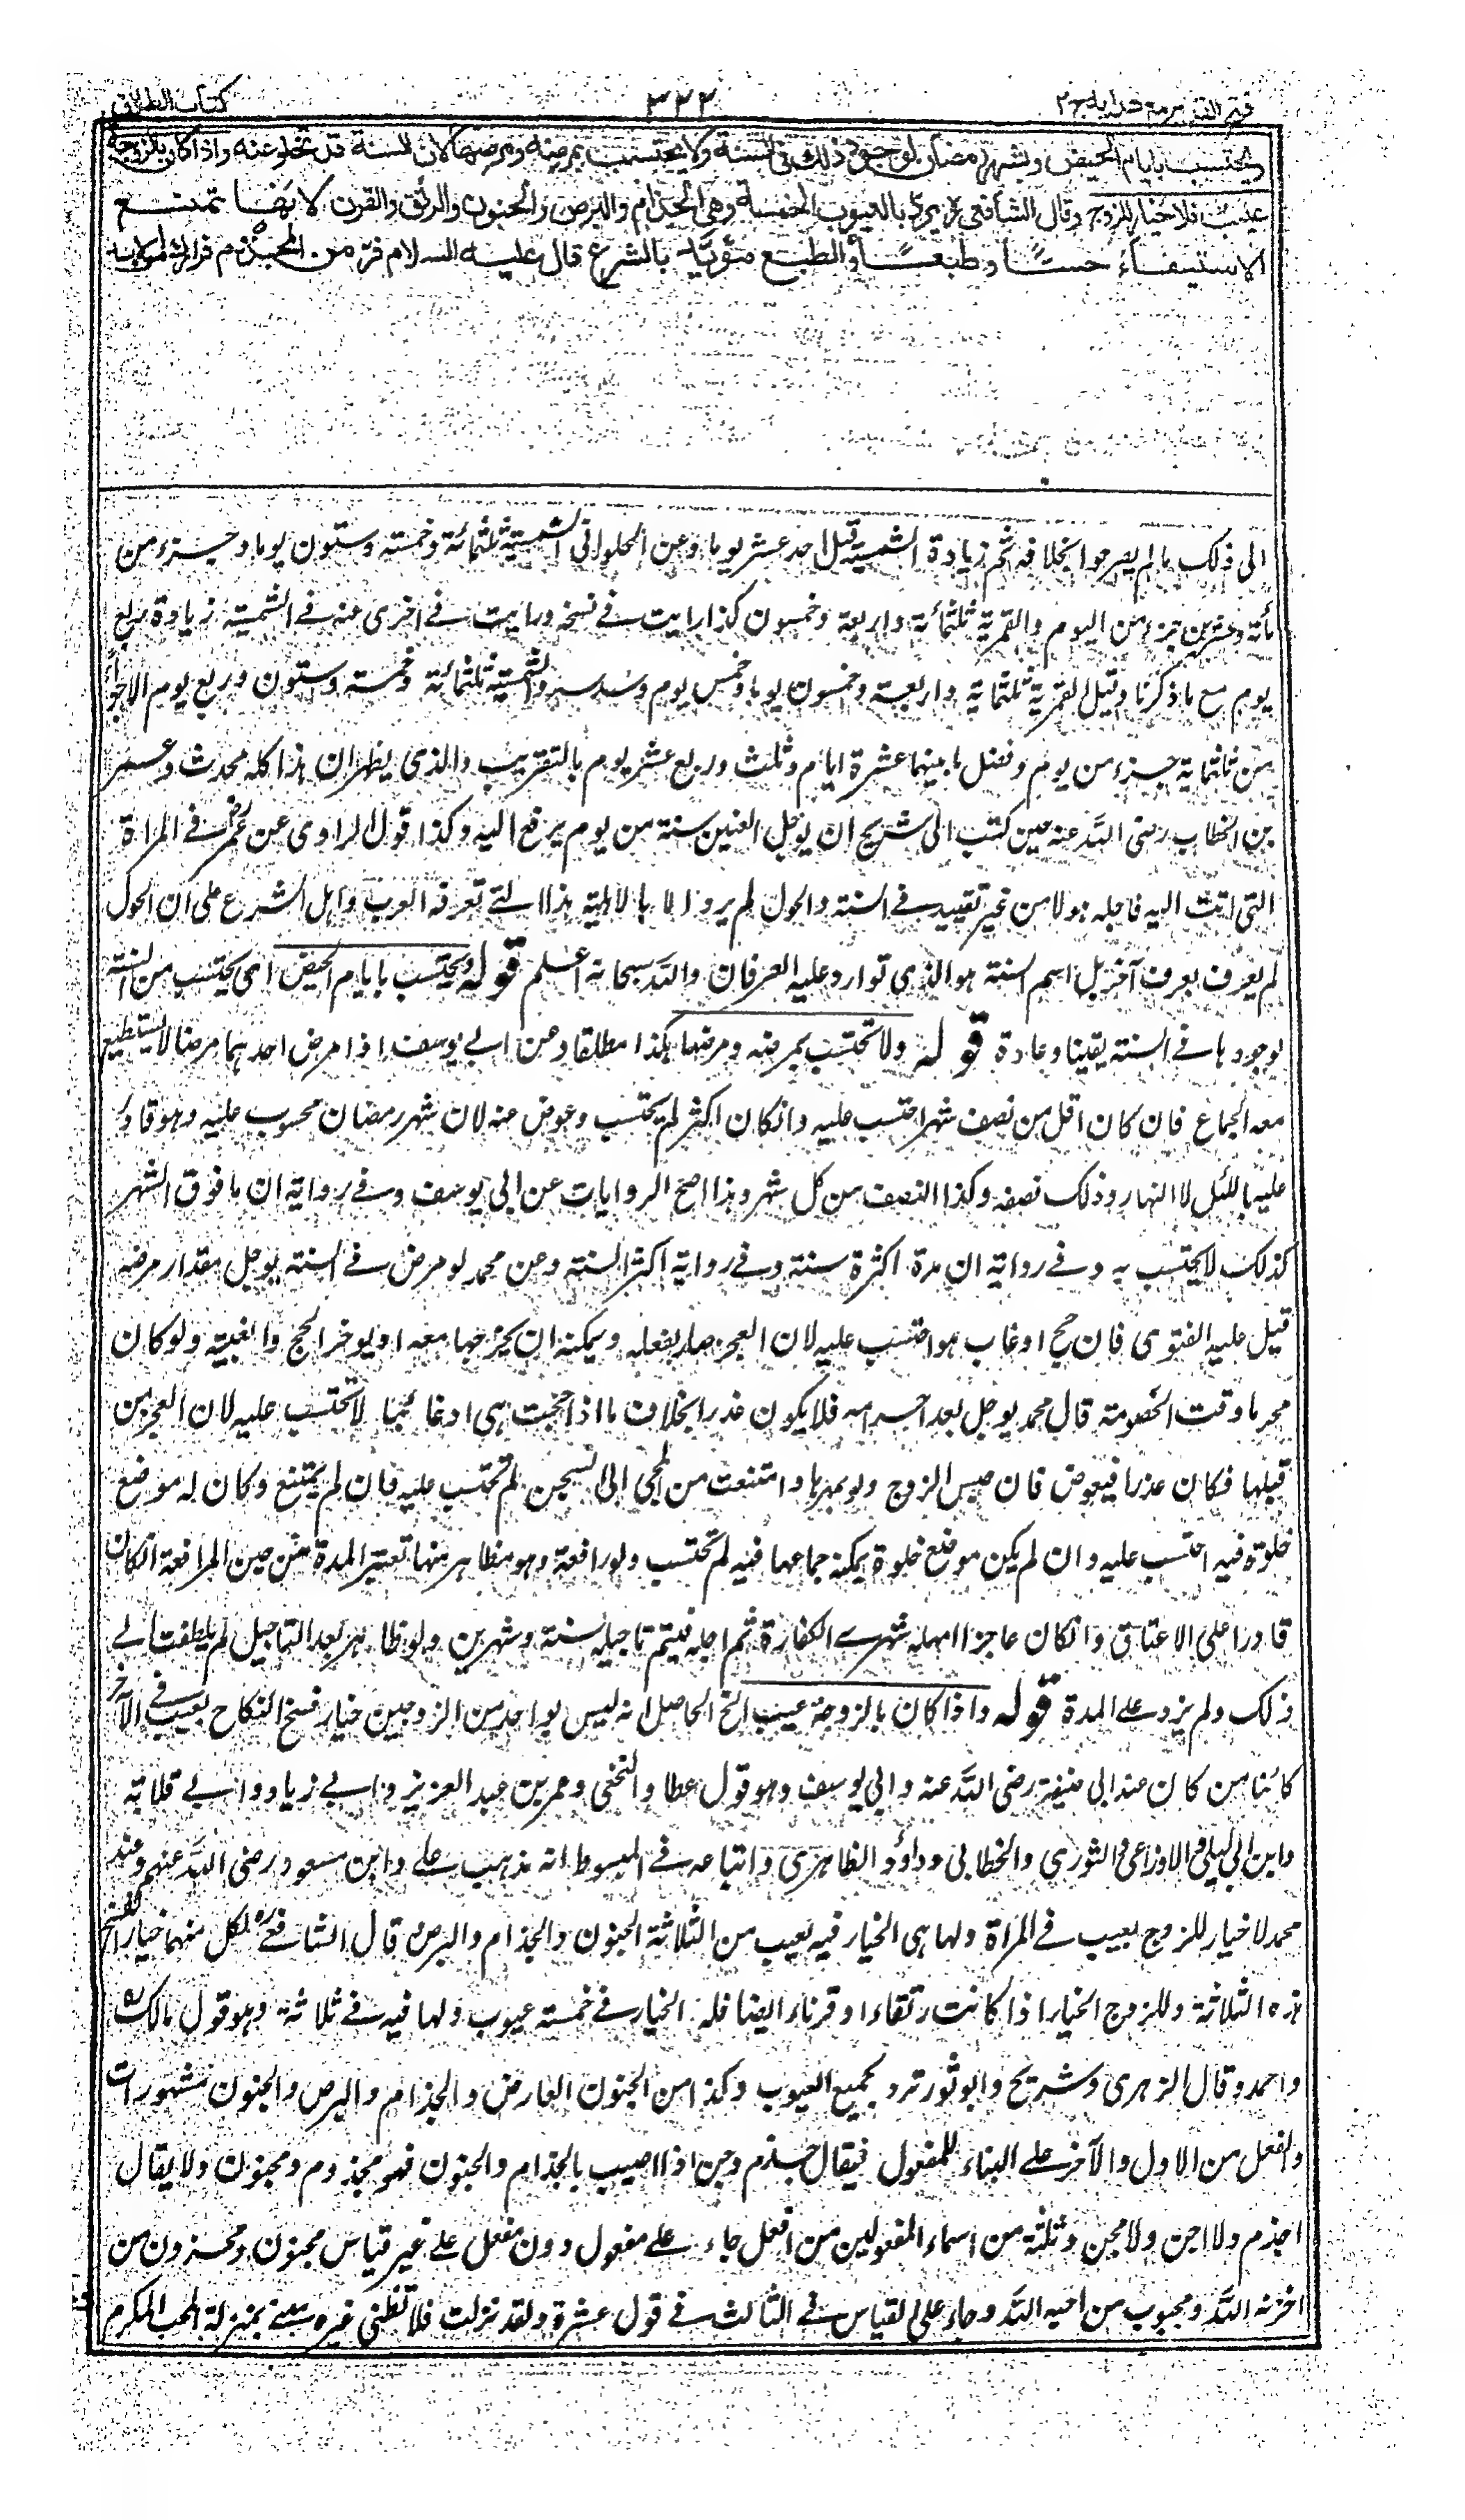 فتح القدير مع هدايه ج٢
٣٢٢
كتاب الطلاق
ويحتسب بايام الحيض وبشهر رمضان لوجود ذلك فى السنة ولا يحتسب بمرضه ومرضها لان السنة قد تخلو عنه واذا كان بالزوجة
عيب فلا خيار للزوج وقال الشافعى يرد بالعيوب الخمسة وهى الجذام والبرص والجنون والرتق والقرن لانها تمنع
الاستيفاء حسًا وطبعًا والطبع مؤيد بالشرع قال عليه السلام فر من المجذوم فرارك من الاسد
الى ذلك ما لم يصرحوا بخلافه ثم زيادة الشمسية قيل احد عشر يوما وعن الحلوانى الشمسية ثلثمائة وخمسة وستون يوما وجزء من
مأئة وعشرين جزء من اليوم والقمرية ثلثمائة واربعة وخمسون كذا رايت فے نسخة ورايت فے اخرى عنه فے الشمسية زيادة ربع
يوم مع ما ذكرنا وقيل القمرية ثلثماية واربعة وخمسون يوما وخمس يوم وسدسه والشمسية ثلثمائة وخمسة وستون وربع يوم الا جزأ
من ثلثماية جزء من يوم وفضل ما بينهما عشرة ايام وثلث وربع عشر يوم بالتقريب والذى يظهر ان هذا كله محدث وعمر
بن الخطاب رضى الله عنه حين كتب الى شريح ان يوجل العنين سنة من يوم يرفع اليه وكذا قول الراوى عن عمر رض فے المرأة
التى اتت اليه فاجله حولا من غير تقييد فے السنة والحول لم يرد الا بالاهلية هذا التے تعرفه العرب واهل الشرع على ان الحول
لم يعرف بعرف آخر بل اسم السنة هو الذى توارد عليه العرفان والله سبحانه اعلم قوله ويحتسب بايام الحيض اى يحتسب من السنة
لوجودها فے السنة يقينا وعادة قوله ولا تحتسب بمرضه ومرضها هكذا مطلقا وعن ابے يوسف اذا مرض احدهما مرضا لا يستطيع
معه الجماع فان كان اقل من نصف شهر احتسب عليه وانكان اكثر لم يحتسب وعوض عنه لان شهر رمضان محسوب عليه وهو قادر
عليه بالليل لا النهار وذلك نصفه وكذا النصف من كل شهر وهذا اصح الروايات عن ابى يوسف وفے رواية ان ما فوق الشهر
كذلك لا يحتسب به وفے رواية ان مدة اكثرة سنة وفے رواية اكثر السنة وعن محمد لو مرض فے السنة يوجل مقدار مرضه
قيل عليه الفتوى فان حج او غاب هو احتسب عليه لان العجز جاء بفعله ويمكنه ان يخرجها معه او يوخر الحج والغيبة ولو كان
محرما وقت الخصومة قال محمد يوجل بعد احرامه فلا يكون عذرا بخلاف ما اذا حجت هى او غابت لا تحتسب عليه لان العجز من
قبلها فكان عذرا فيعوض فان حبس الزوج ولو بمهرها وامتنعت من المجئ الى السجن لم تحتسب عليه فان لم يمتنع وكان له موضع
خلوة فيه احتسب عليه وان لم يكن موضع خلوة يمكنه جماعها فيه لم تحتسب ولو رافعة وهو مظاهر منها تعتبر المدة من حين المرافعة انكان
قادرا على الاعتاق وانكان عاجزا امهله شهرے الكفارة ثم اجله فيتم تاجيله سنة وشهرين ولو ظاهر بعد التاجيل لم يلتفت الے
ذلك ولم يزد علے المدة قوله واذا كان بالزوجة عيب الخ الحاصل انه ليس لواحد من الزوجين خيار فسخ النكاح بعيب فے الآخر
كائنا من كان عند ابى حنيفة رضى الله عنه وابى يوسف وهو قول عطا والنخعى وعمر بن عبد العزيز وابے زياد وابے قلابة
وابن ابى ليلى والاوزاعى والثورى والخطابى وداؤد الظاهرى واتباعه فے المبسوط انه مذهب علے وابن مسعود رضى الله عنهم وعند
محمد لا خيار للزوج بعيب فے المرأة ولها هى الخيار فيه بعيب من الثلاثة الجنون والجذام والبرص قال الشافعے ره لكل منهما خيار الفسخ
هذه الثلاثة وللزوج الخيار اذا كانت رتقاء او قرناء ايضا فله الخيار فے خمسة عيوب ولها فيه فے ثلاثة وهو قول مالك ره
واحمد وقال الزهرى وشريح وابو ثور ترد بجميع العيوب وكذا من الجنون العارض والجذام والبرص والجنون مشهورات
والفعل من الاول والآخر علے البناء للمفعول فيقال جذم وجن اذا اصيب بالجذام والجنون فهو مجذوم ومجنون ولا يقال
اجذم ولا اجن ولا مجن وثلثة من اسماء المفعولين من افعل جاء علے مفعول دون مفعل علے غير قياس مجنون ومحزون من
احزنه الله ومحبوب من احبه الله وجاء على القياس فے الثالث فے قول عنترة ولقد نزلت فلا تظنى غيره منے بمنزلة المحب المكرم